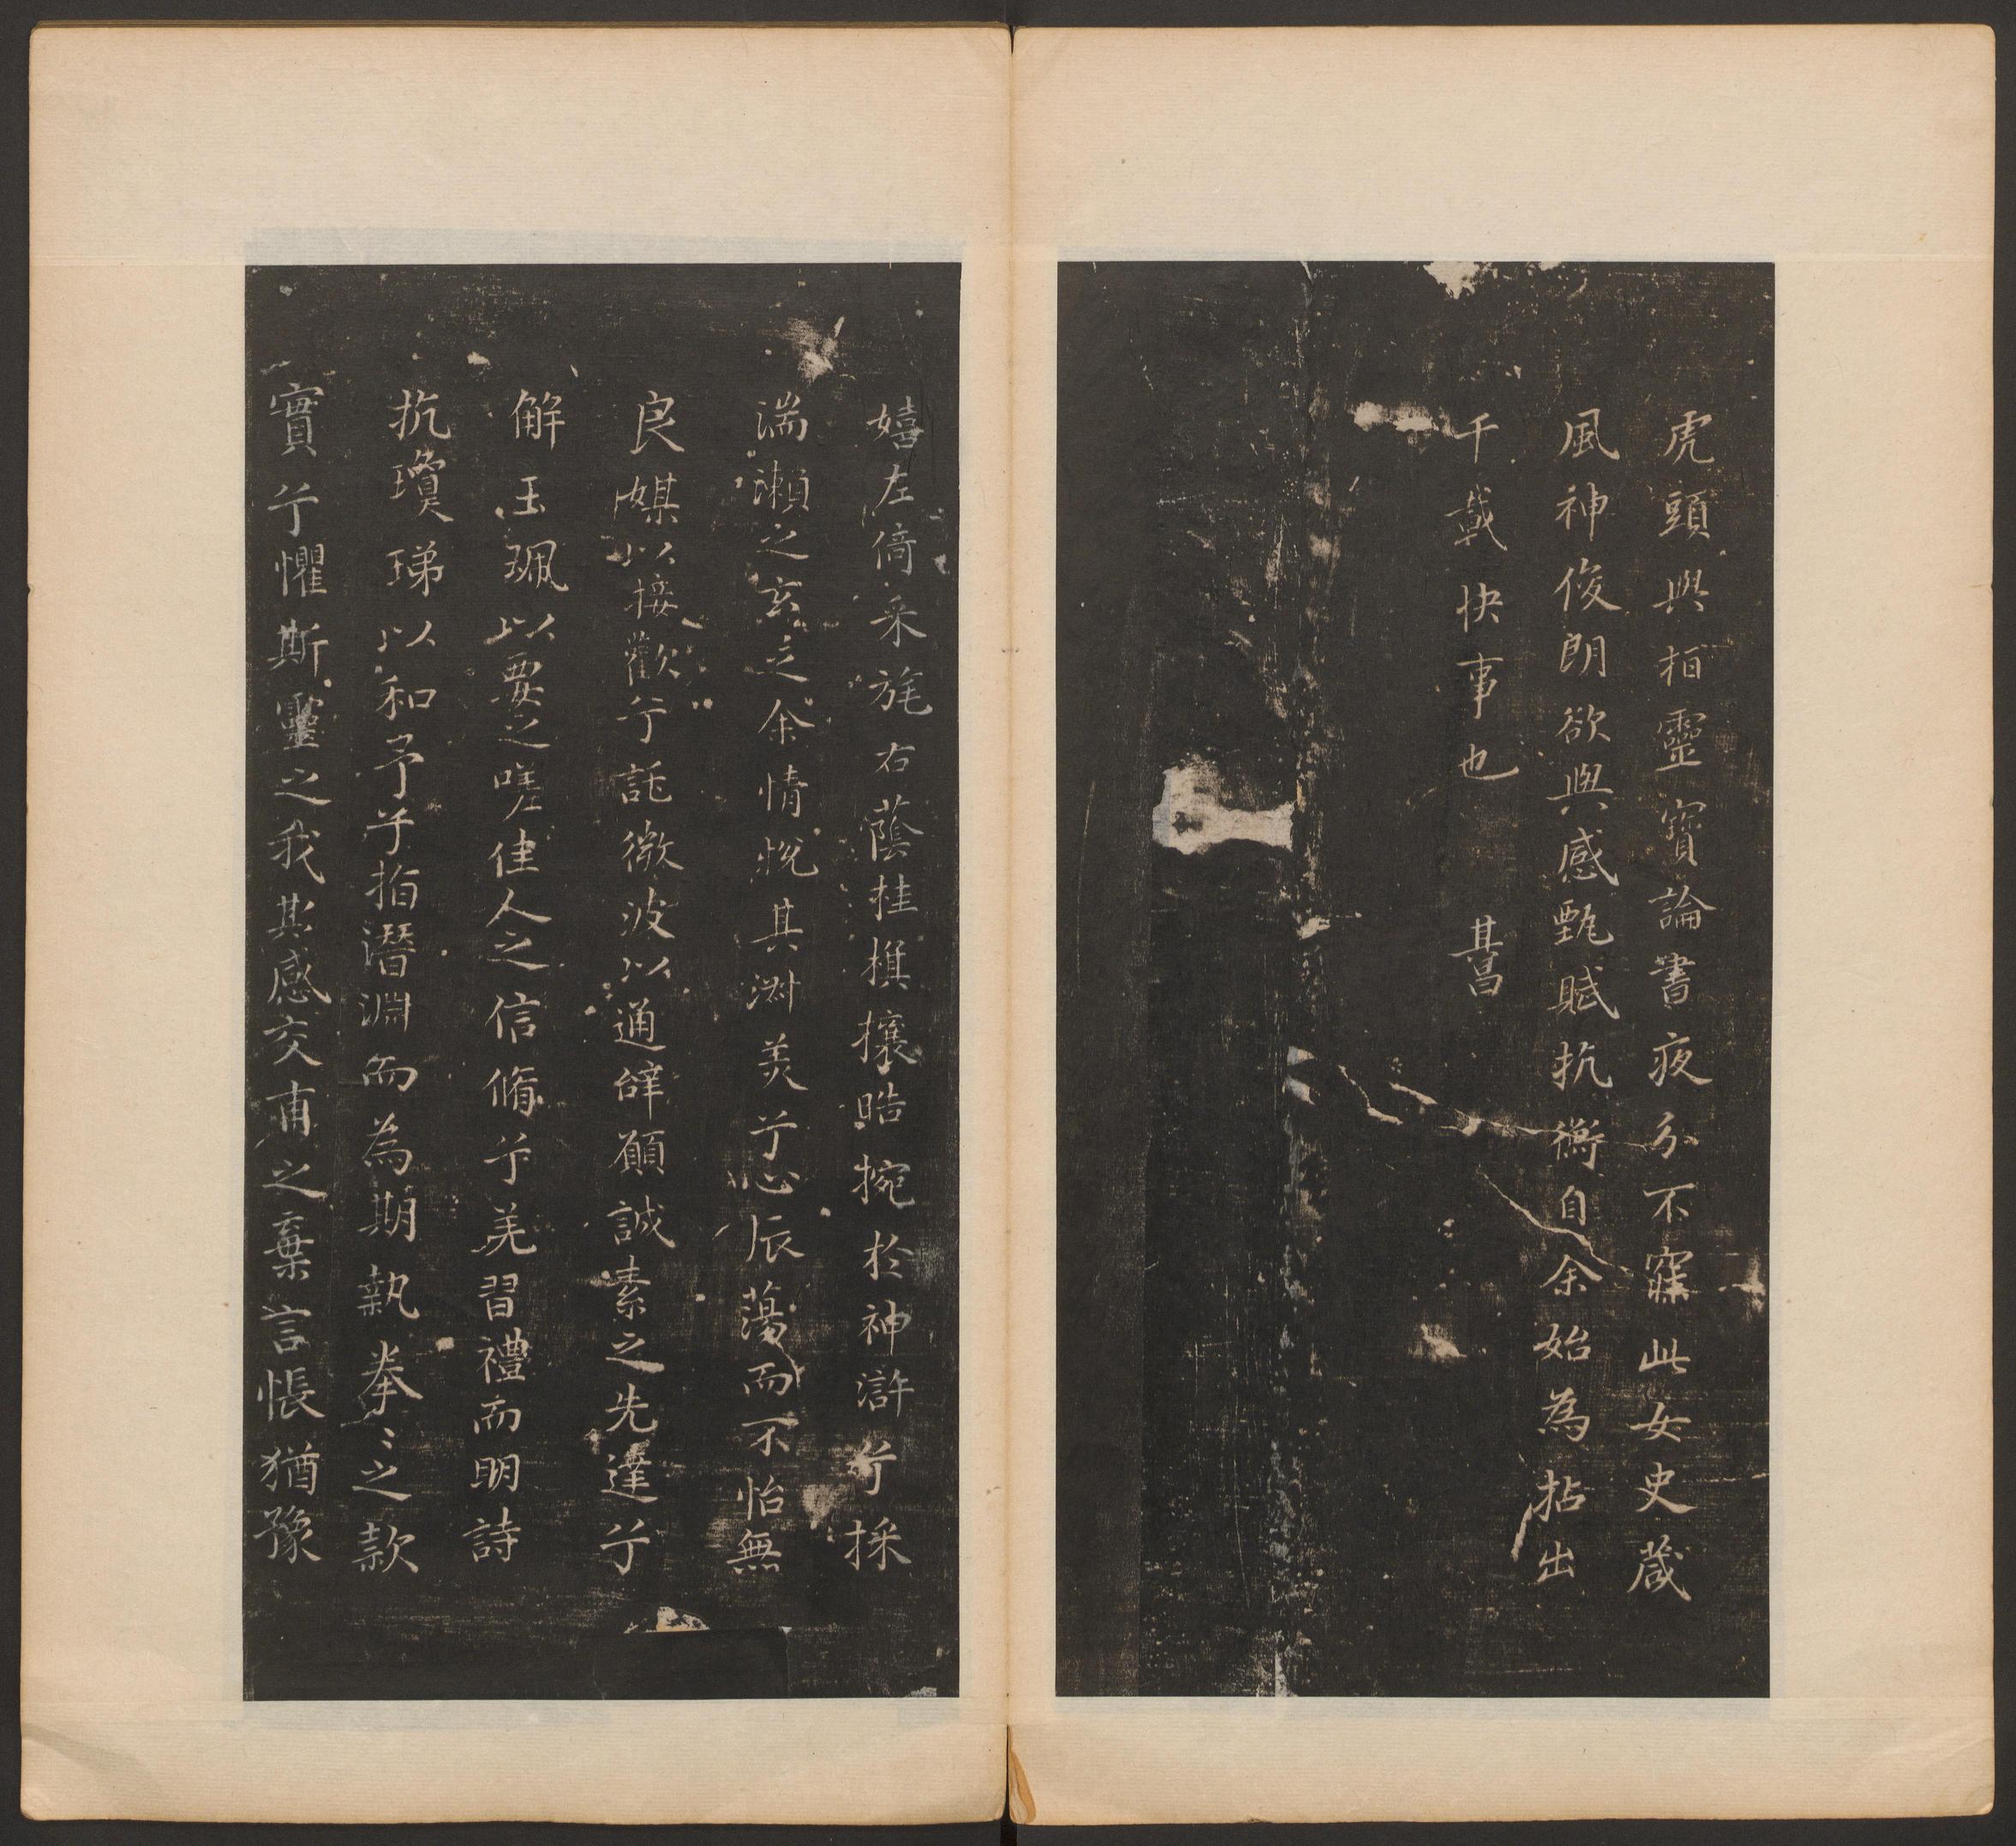 虎頭與桓靈寶論書夜分不寐此女史葴
風神俊朗欲與感甄賦抗衡自余始為拈出
千載快事也　其昌
嬉左倚采旄右蔭桂旗攘晧捥於神滸兮採
湍瀨之玄芝余情悅其淑美兮心振蕩而不怡無
良媒以接歡兮託微波以通辭願誠素之先達兮
解玉珮以要之嗟佳人之信脩兮羌習禮而明詩
抗瓊珶以和予兮指潛淵而為期執拳〻之款
實兮懼斯靈之我欺感交甫之棄言悵猶豫